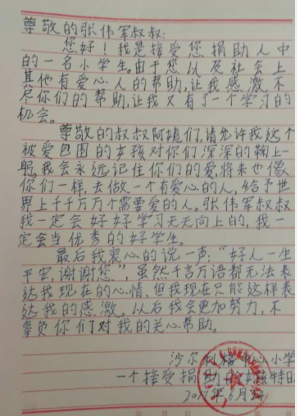 尊敬的张伟军叔叔:
您好!我是接受您捐助人中
的一名小学生。由于您以及社会上
其他有爱心人的帮助,让我感激不
尽你们的帮助,让我又有了一个学习的
机会。
尊敬的叔叔阿姨们,请允许我这个
被爱包围的女孩对你们深深的鞠上一
躬。我会永远记住你们的爱,将来也像
你们一样,去做一个有爱心的人,给予世
界上千千万万个需要爱的人。张伟军叔叔
我一定会好好学习天天向上的,我一
定会当优秀的好学生。
最后我衷心的说一声:"好人一生
平安,谢谢您",虽然千言万语都无法表
达我现在的心情,但我现在只能这样表
达我的感激。以后我会更加努力,不
辜负你们对我的关心帮助。
沙尔 小学
一个接受捐助的 特日
2017年6月